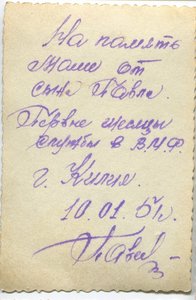 На память
маме от
сына Павла.
Первые месяцы
службы в В.М.Ф.
г. Килия.
10.01.51г.
Павел